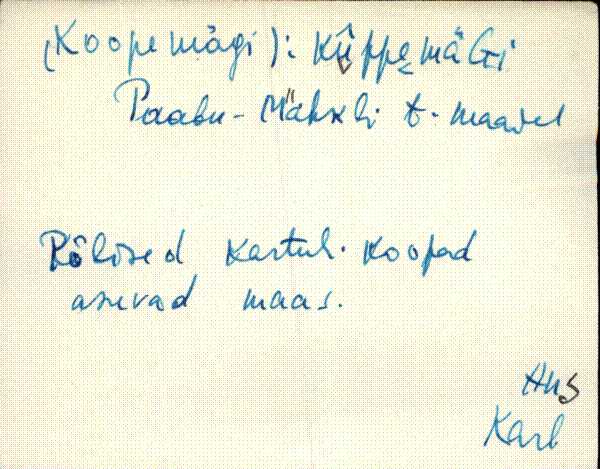 (Koopemägi): Kũppe̮mäGi
Paabu-Mähkli t. maadel
Põlised kartuli koopad
asuvad maas.
Hls
Karl